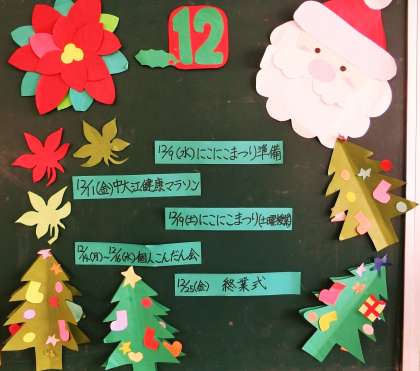 12
12/9(水)にこにこまつり準備
12/11(金)中大江健康マラソン
12/19(土)にこにこまつり(土曜授業)
12/14(月)~12/16(水)個人こんだん会
12/25(金) 終業式